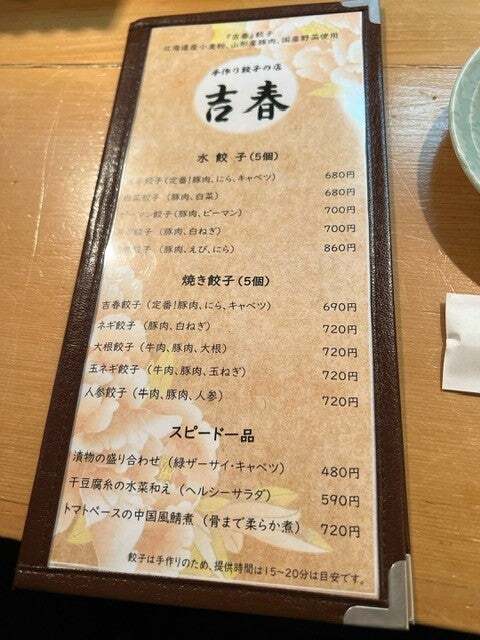 『吉春』餃子
北海道産小麦粉、山形産豚肉、国産野菜使用
手作り餃子の店
吉春
水餃子(5個)
餃子(定番!豚肉、にら、キャベツ) 680円
白菜餃子(豚肉、白菜) 680円
ピーマン餃子(豚肉、ピーマン) 700円
餃子(豚肉、白ねぎ) 700円
餃子(豚肉、えび、にら) 860円
焼き餃子(5個)
吉春餃子(定番!豚肉、にら、キャベツ) 690円
ネギ餃子(豚肉、白ねぎ) 720円
大根餃子(牛肉、豚肉、大根) 720円
玉ネギ餃子(牛肉、豚肉、玉ねぎ) 720円
人参餃子(牛肉、豚肉、人参) 720円
スピード一品
漬物の盛り合わせ(緑ザーサイ・キャベツ) 480円
干豆腐糸の水菜和え(ヘルシーサラダ) 590円
トマトベースの中国風鯖煮(骨まで柔らか煮) 720円
餃子は手作りのため、提供時間は15～20分は目安です。